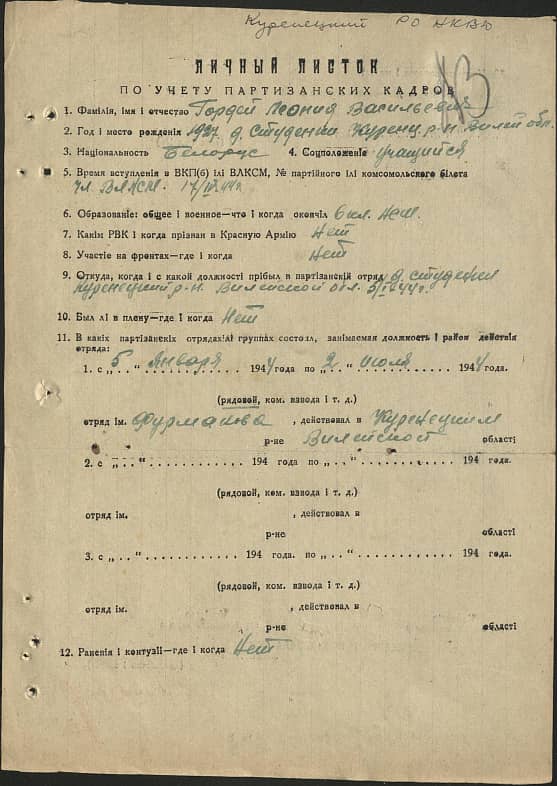 Куренецкий РО НКВД
13
ЛИЧНЫЙ ЛИСТОК
ПО УЧЕТУ ПАРТИЗАНСКИХ КАДРОВ
1. Фамілія, імя і отчество Гордей Леонид Васильевич
2. Год і место рожденія 1927 д. Студенки Куренец. р-н Вилей обл.
3. Національность Белорус 4. Соцположеніе учащийся
5. Время вступленія в ВКП(б) ілі ВЛКСМ, № партійного ілі комсомольского білета
чл. ВЛКСМ. 17/III 44г.
6. Образованіе: общее і военное—что і когда окончіл 6 кл. НСШ.
7. Какім РВК і когда прізван в Красную Армію Нет
8. Участіе на фронтах—где і когда Нет
9. Откуда, когда і с какой должності прібыл в партізанскій отряд д. Студенки
Куренецкий р-н. Вилейской обл. 5/I 44г.
10. Был лі в плену—где і когда Нет
11. В какіх партізанскіх отрядах ілі группах состоял, занімаемая должность і район действія
отряда:
1. с „ 5 “ Января 1944 года по „ 2 “ июля 1944 года.
(рядовой, ком. взвода і т. д.)
отряд ім. Фурманова , действовал в Куренецким
р-не Вилейской області
2. с „ . . “ . . . . . . . . . . . . 194 года по „ . . “ . . . . . . . . . . . . 194 года.
(рядовой, ком. взвода і т. д.)
отряд ім. , действовал в
р-не області
3. с „ . . “ . . . . . . . . . . . . 194 года. по „ . . “ . . . . . . . . . . . . 194 года.
(рядовой, ком. взвода і т. д.)
отряд ім. , действовал в
р-не області
12. Раненія і контузіі—где і когда Нет